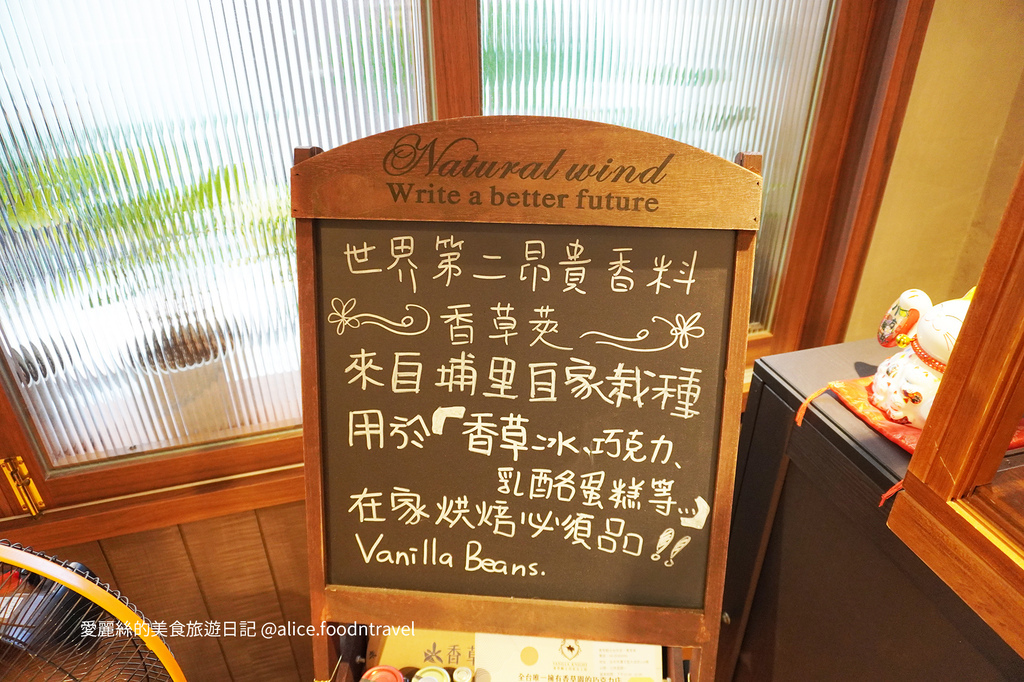 Natural wind
Write a better future
世界第二昂貴香料
香草莢
來自埔里自家栽種
用於「香草冰、巧克力、
乳酪蛋糕等...」
在家烘焙必須品!!
Vanilla Beans.
愛麗絲的美食旅遊日記 @alice.foodntravel
香草
全台唯一擁有香草園的巧克力店